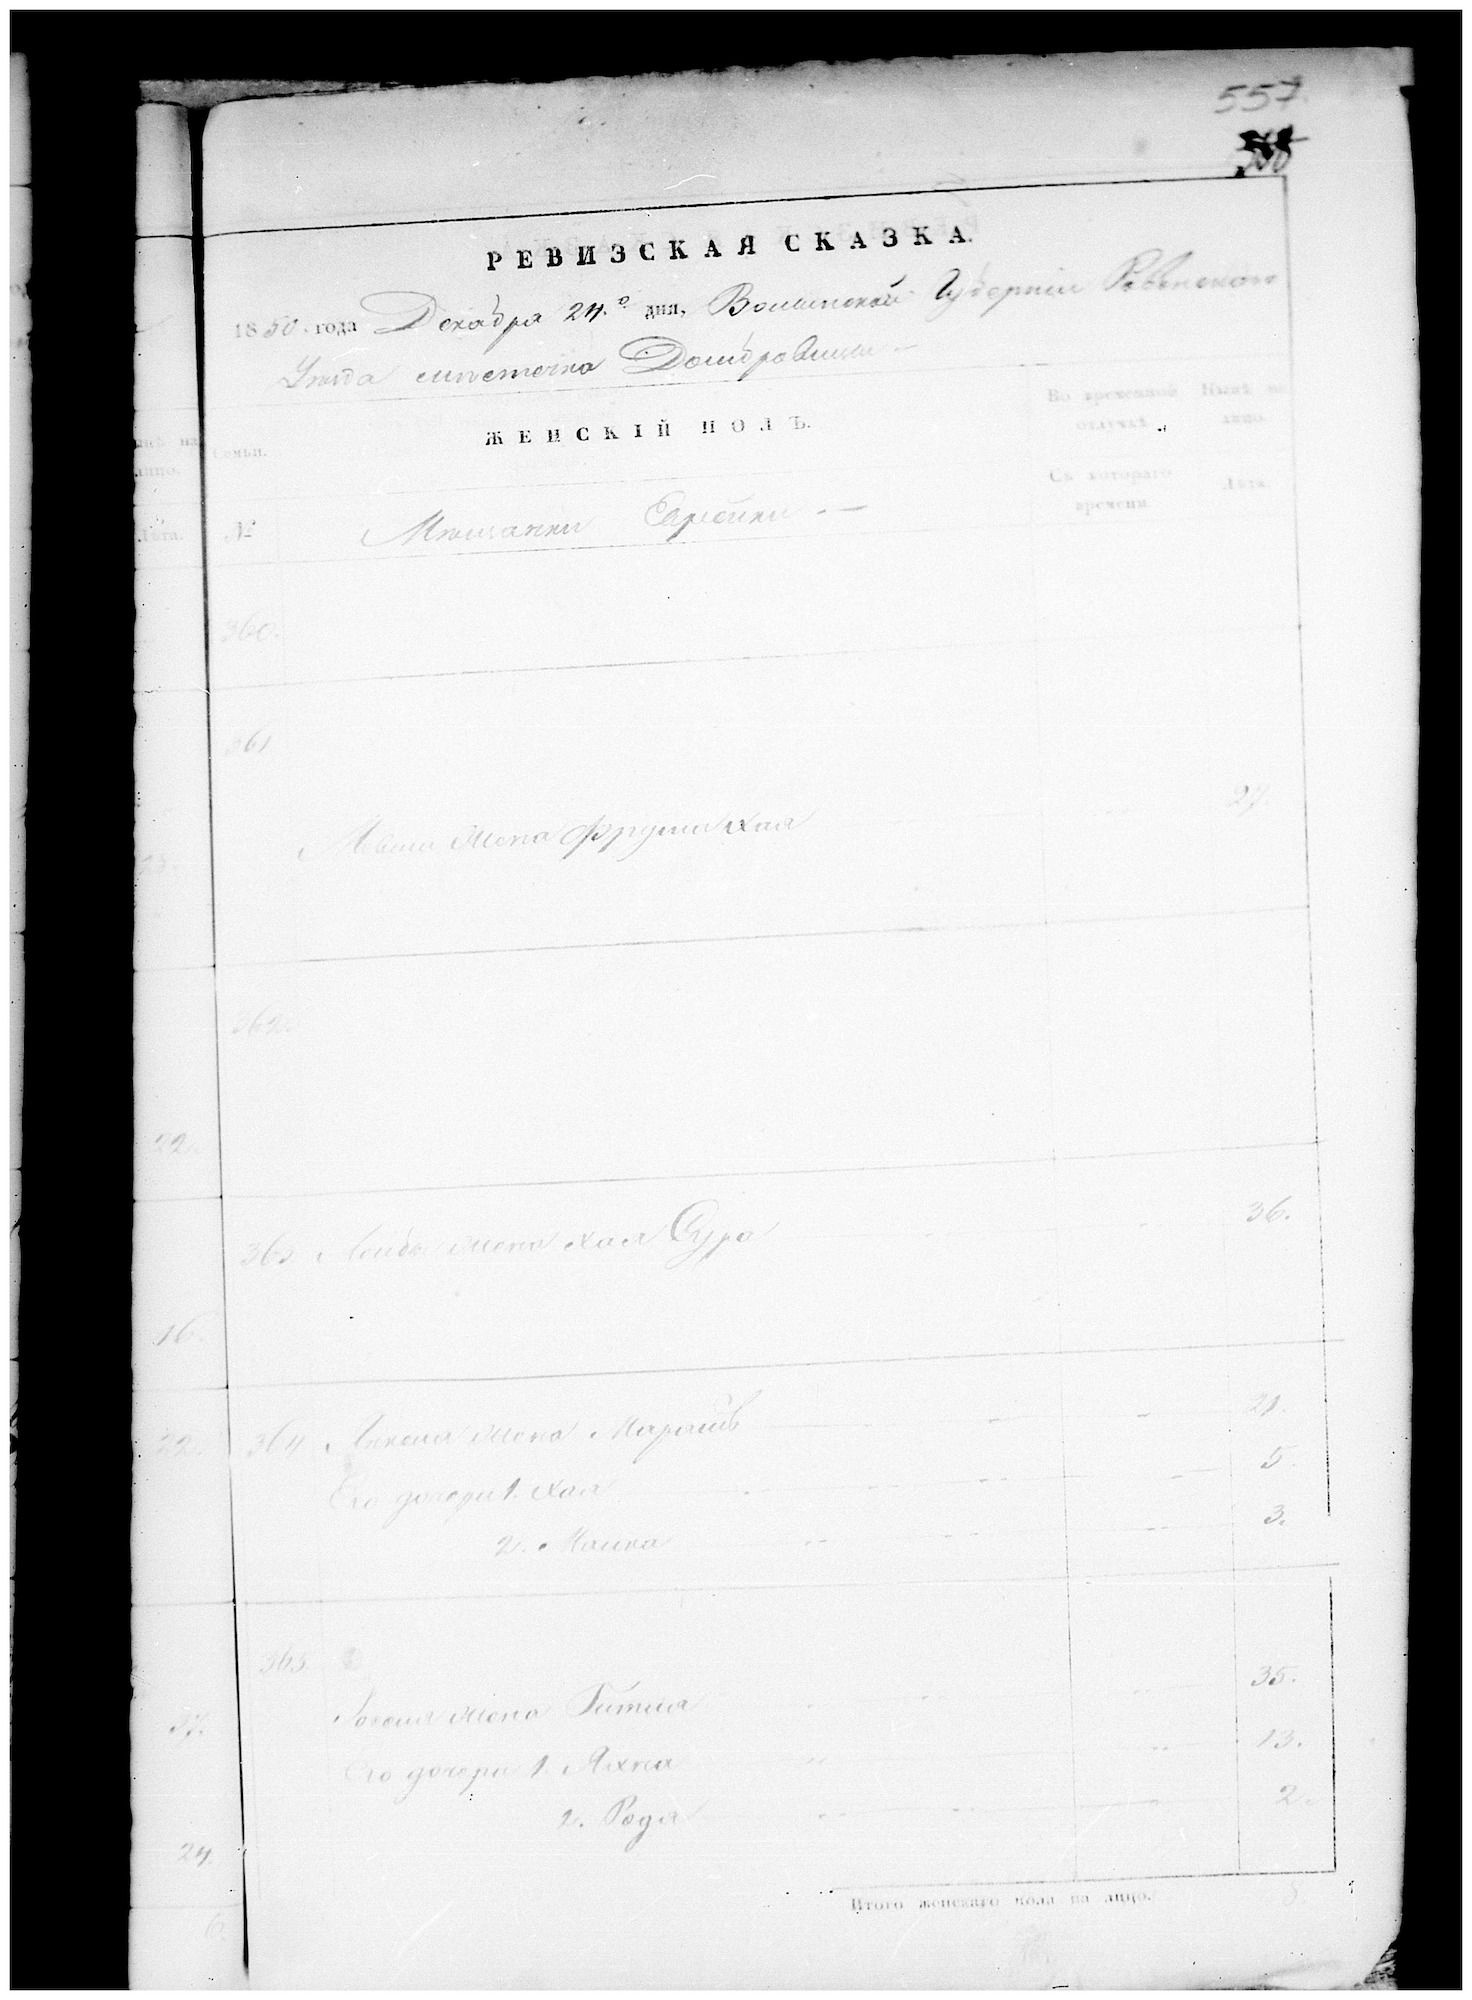 557.
РЕВИЗСКАЯ СКАЗКА.
1850. года Декабря 24.º дня, Волынской Губернии Ровенского
Уѣзда мѣстечка Домбровицы —
ЖЕНСКІЙ ПОЛЪ.
Во временной отлучкѣ.
Нынѣ на лицо.
Семьи.
Съ котораго времени.
Лѣта.
№
Мѣщанки Еврейки —
360.
361
жена Фрума Хая 27.
362.
363 Лейбы жена Хая Сура 36.
364 Янкеля жена Маріамъ 21.
Его дочери 1. Хая 5.
2. Малка 3.
365
жена Гитля 35.
Его дочери 1. Яхна 13.
2. Родя 2.
Итого женскаго пола на лицо. 8
22.
16.
22.
37.
24.
6.